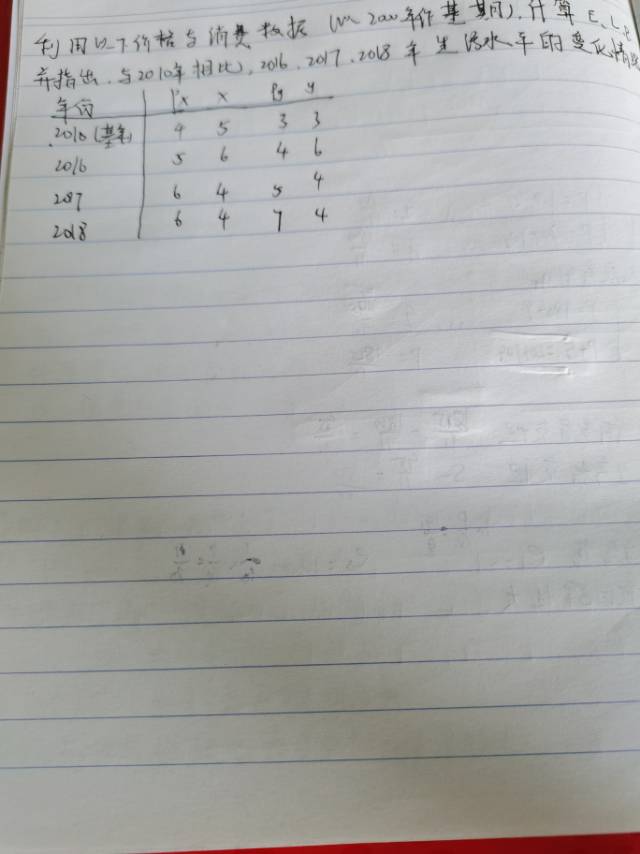 利用以下价格与消费数据(以2000年作基期),计算E、L、P
并指出,与2010年相比,2016、2017、2018年生活水平的变化情况
年份 Px x Py y
2010(基年) 4 5 3 3
2016 5 6 4 6
2017 6 4 5 4
2018 6 4 7 4